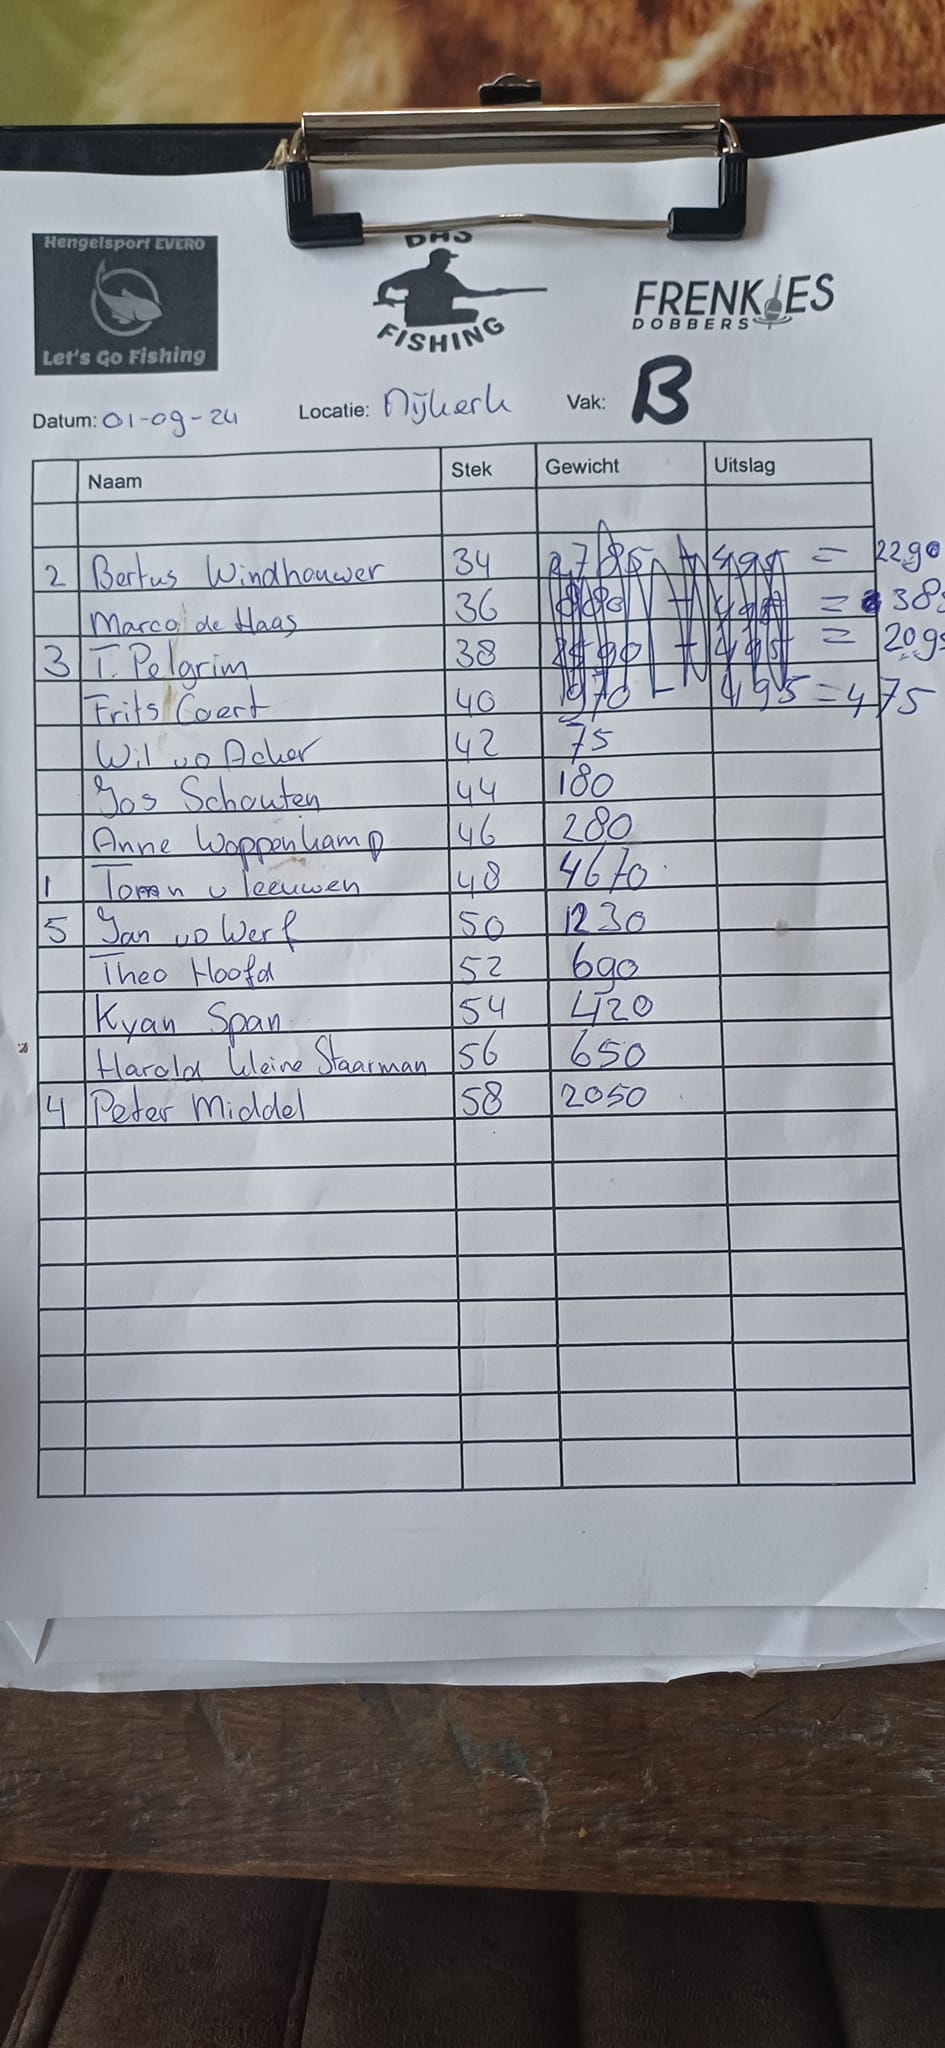 Hengelsport EVERO
Let's Go Fishing
DHS
FISHING
FRENKIES
DOBBERS
Datum: 01-09-24 Locatie: Nijkerk Vak: B
Naam Stek Gewicht Uitslag
2 Bertus Windhouwer 34 2785 - 495 = 2290
Marco de Haas 36 - 495 = 385
3 T. Pelgrim 38 2590 - 495 = 2095
Frits Coert 40 970 - 495 = 475
Wil vd Acker 42 75
Jos Schouten 44 180
Anne Woppenkamp 46 280
1 Toman v Leeuwen 48 4670
5 Jan vd Werf 50 1230
Theo Hoofd 52 690
Kyan Span 54 420
Harold kleine Staarman 56 650
4 Peter Middel 58 2050